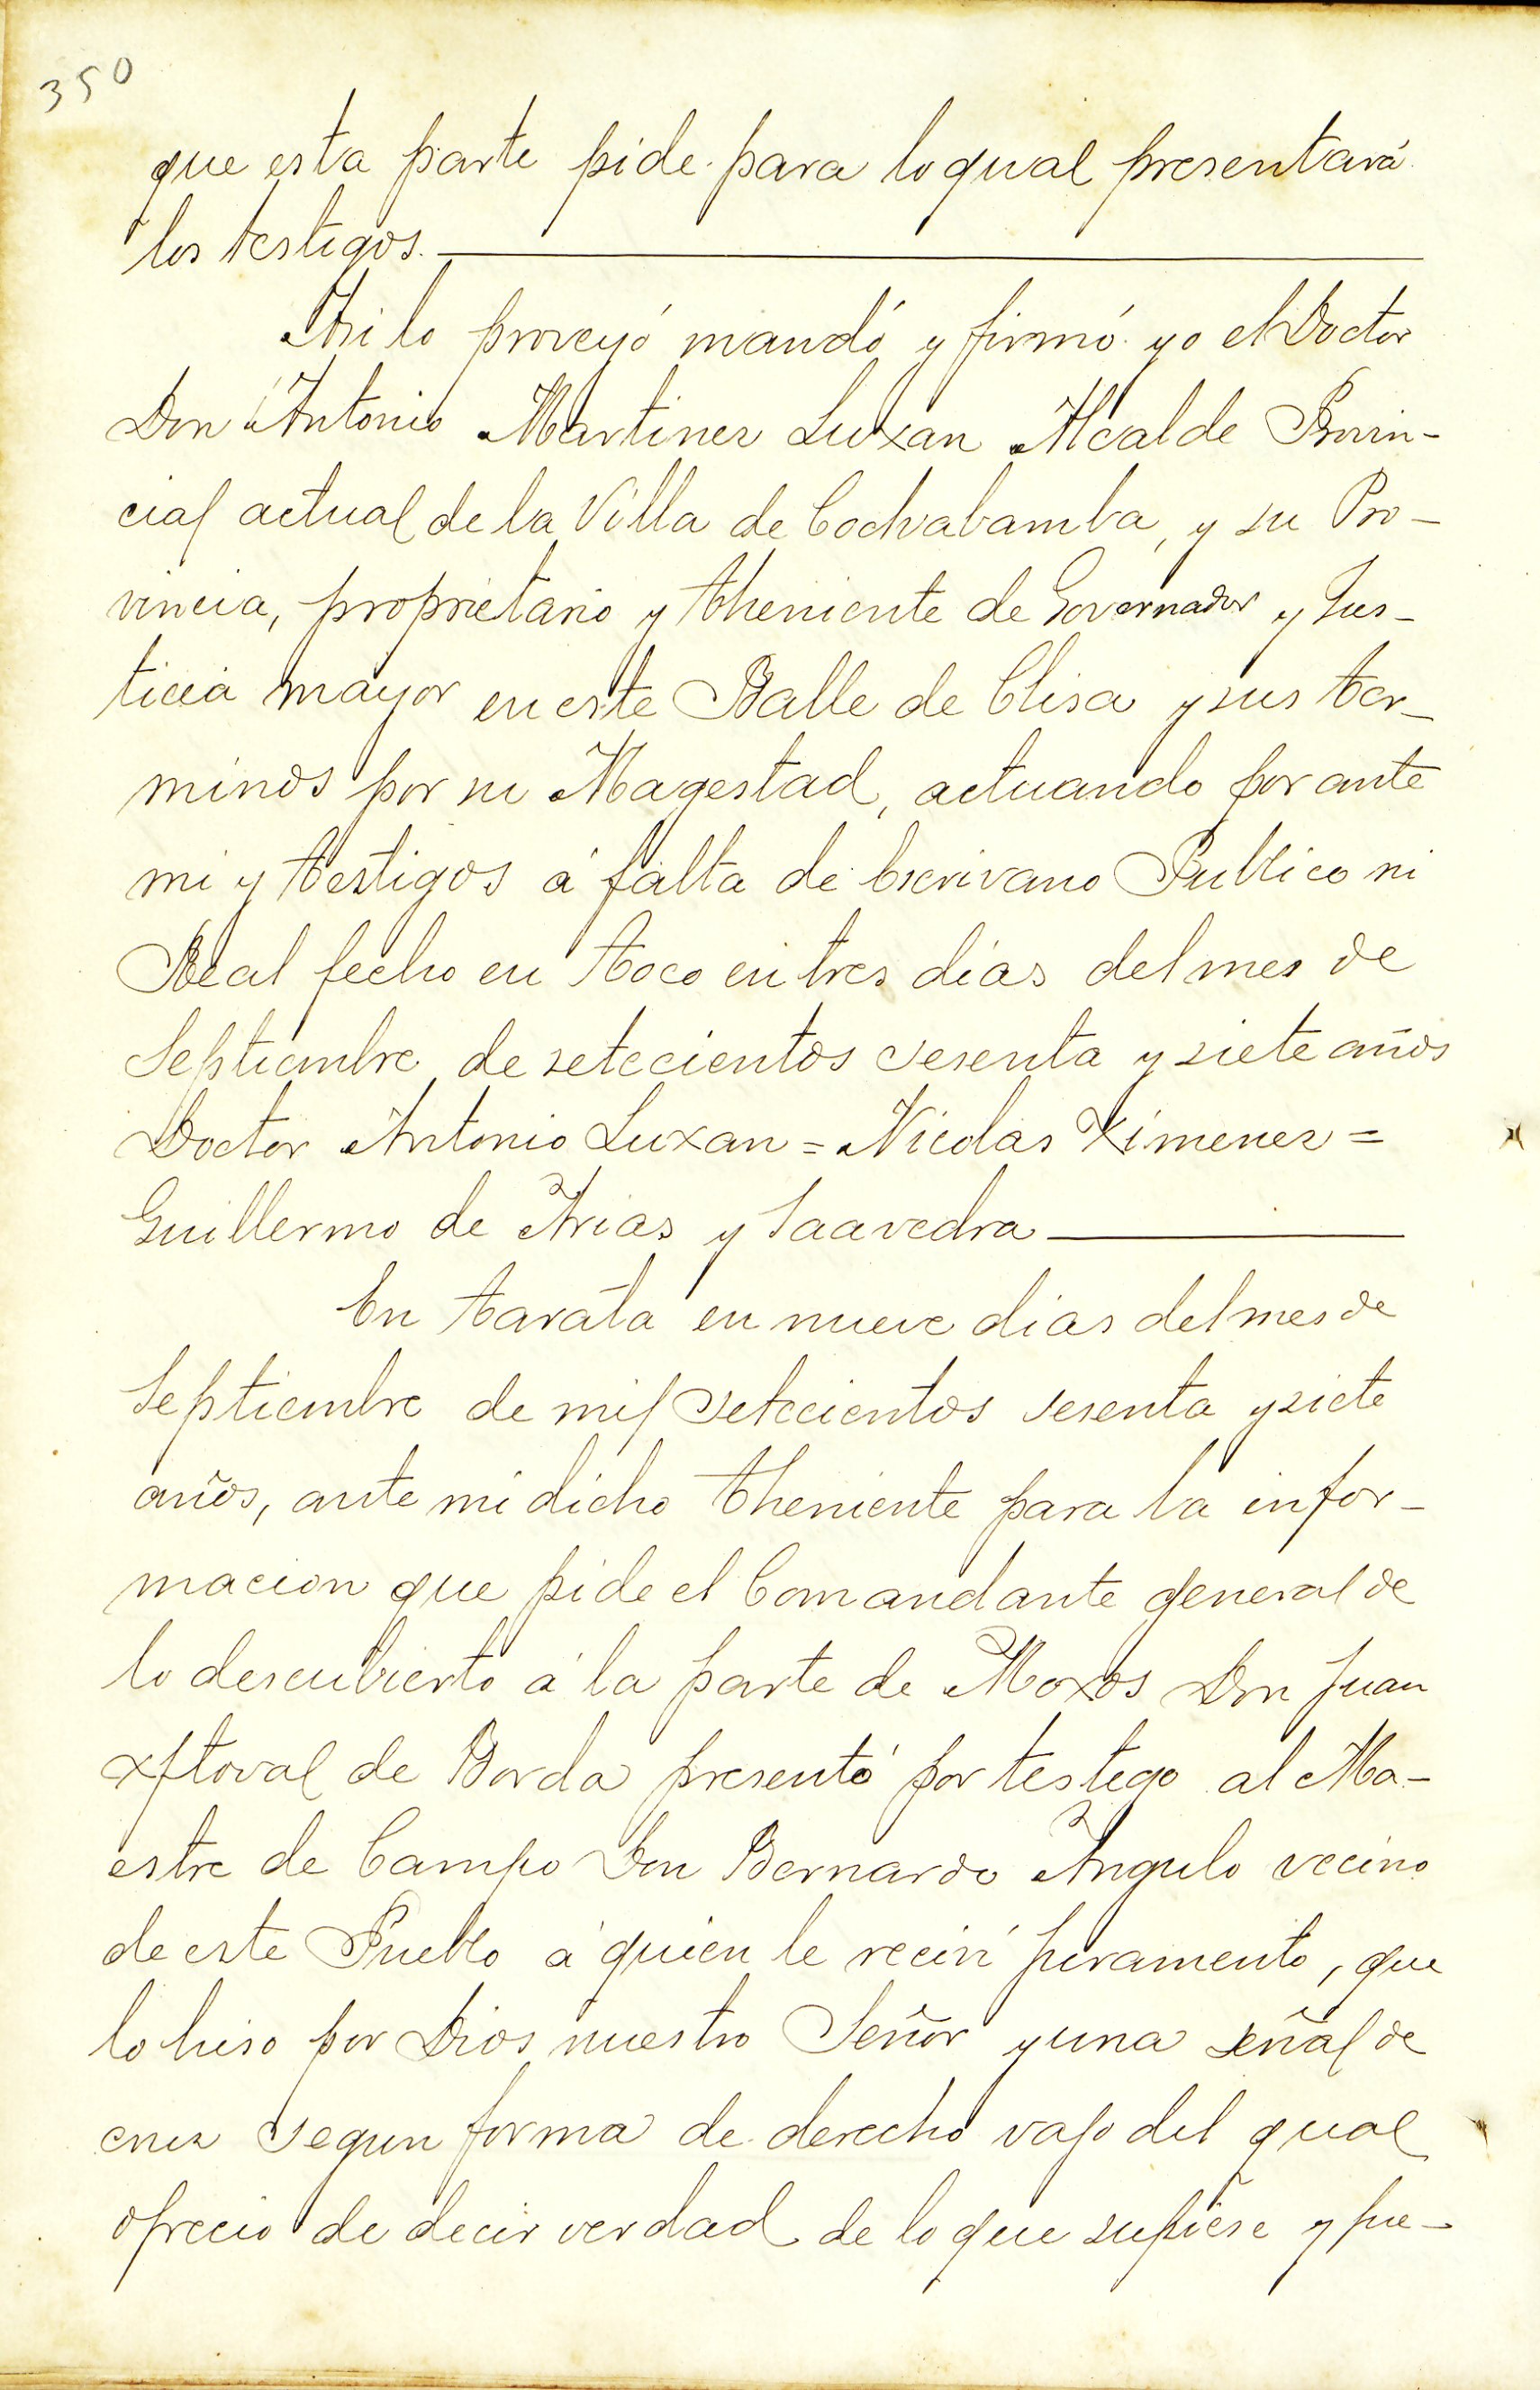 350
que esta parte pide para lo qual presentará
los testigos.
Asi lo proveyó mandó y firmó yo el Doctor
Don Antonio Martinez Luxan Alcalde Provin-
cial actual de la Villa de Cochabamba, y su Pro-
vincia, proprietario y Theniente de Governador y Jus-
ticia mayor en este Balle de Clisa y sus ter-
minos por su Magestad, actuando por ante
mi y testigos á falta de Escrivano Publico ni
Real fecho en Toco en tres dias del mes de
Septiembre de setecientos sesenta y siete años
Doctor Antonio Luxan = Nicolas Ximenez =
Guillermo de Arias y Saavedra
En Tarata en nueve dias del mes de
Septiembre de mil setecientos sesenta y siete
años, ante mi dicho Theniente para la infor-
macion que pide el Comandante general de
lo descubierto á la parte de Moxos Don Juan
xptoval de Borda presentó por testego al Ma-
estre de Campo Don Bernardo Angulo vecino
de este Pueblo á quien le reciví juramento, que
lo hiso por Dios nuestro Señor y una señal de
cruz segun forma de derecho vajo del qual
ofrecio de decir verdad de lo que supiese y fue-